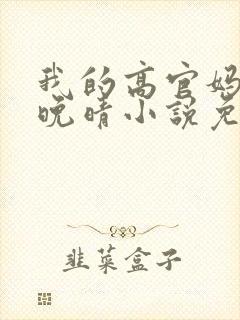 我的高官妈
晚晴小说免
韭菜盒子